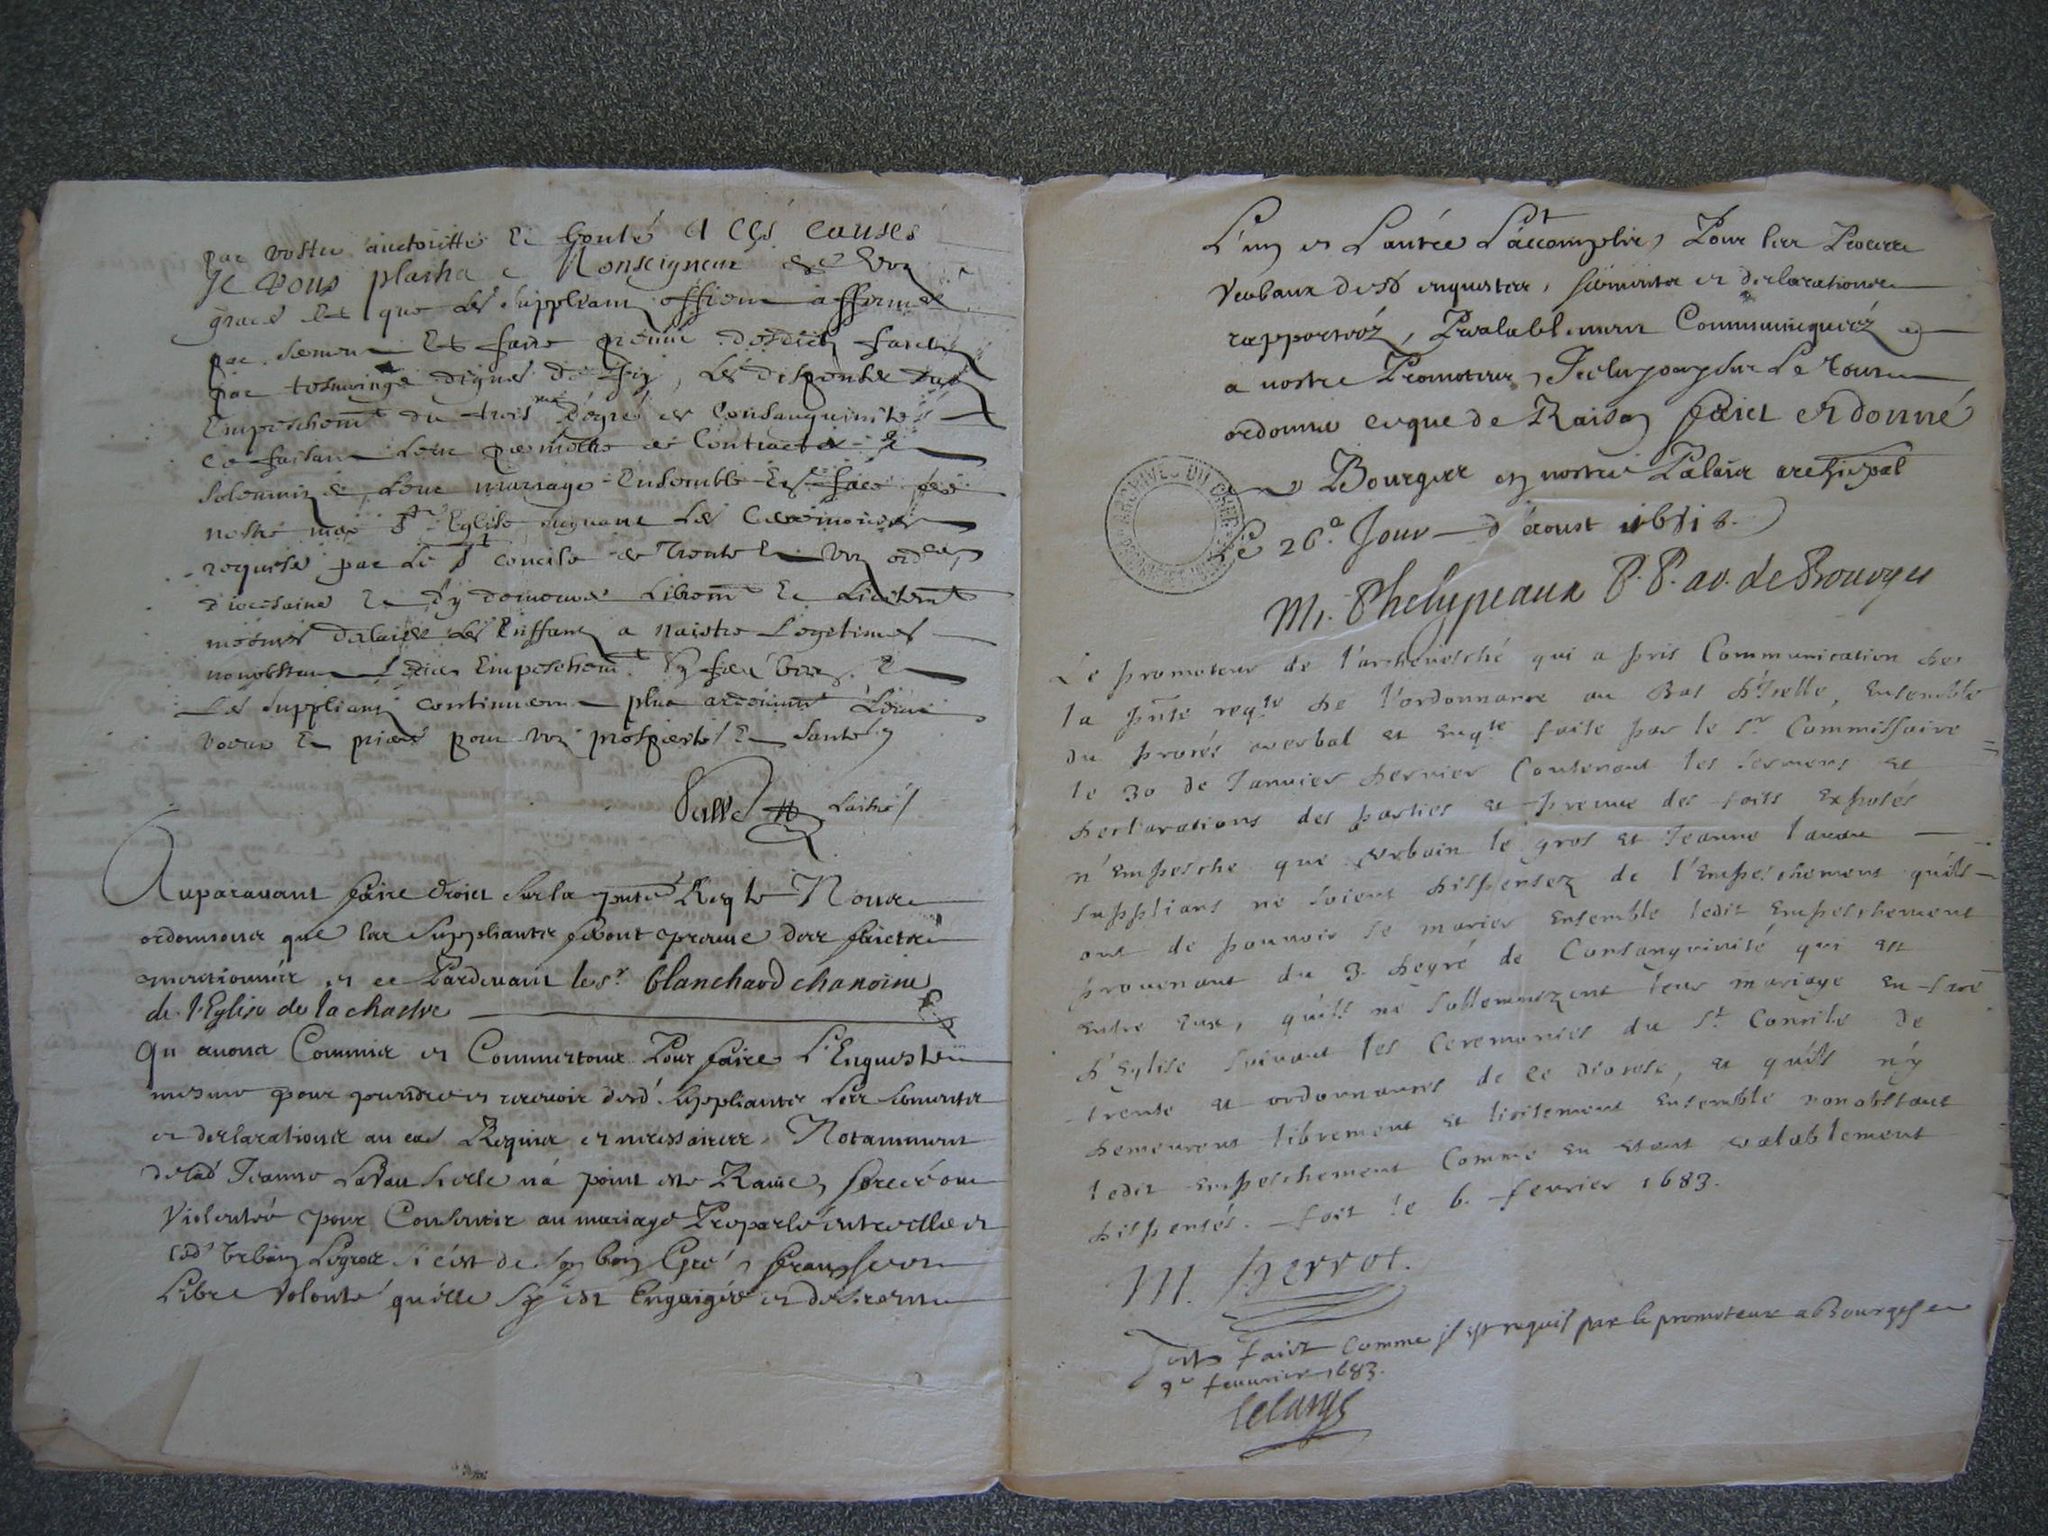 par vostre auctoritté et bonté A Ces causes
Il vous plaira Monseigneur de vos
graces et que les suppliants offrent affermer
par serment et faire preuve desdits faicts
par tesmoings dignes de foy, les dispenser dud
Empeschemt du trois me degré de Consanguinité
Ce faisant leur permettre de Contracter et
solemnizer leur mariage Ensemble En face de
nostre mere Ste Eglise suyvant les Ceremonies
requises par le St concile de Trente Et vos ordces
diocesaine et d'y demeurer libremt et licitemt
declairer les Enffans a naistre Legetimes
nonobstant ledict Empeschemt Et
les suppliants continueront plus ardemmt leurs
voeux et prieres pour vos prosperité Et santé
Auparavant faire droict sur la pnte Reqte Nous
ordonnons que les Suppliants feront preuve des faicts
mentionnés et ce Pardevant le sr. blanchard chanoine
de l'Eglise de la chastre
Qu avons Commis et Commettons Pour faire L'Enqueste
mesme pour prendre et recevoir desd. Suppliants Leurs Serments
et declarations au cas Requis et necessaires, Notamment
de lad Jeanne Lavau si elle n'a point esté Ravie, forcée ou
Violentée pour Consentir au mariage Proparlé entre elle et
led Urbain Legros si c'est de son bon Gré, franche et
Libre Volonté qu'elle s'y est Engaigée et desire en
L'un et L'autre L'accomplir, Pour les Procès
Verbaux desd enquestes, serments et declarations
rapportéz, Prealablement Communiquéz
a nostre Promoteur, Icelluy ouy sur Le tout
ordonné ce que de Raison faict et donné
a Bourges en nostre Palais archiepal
Le 26e Jour d'aoust 1681
M. Phelypeaux P. P. ar. de Bourges
Le promoteur de l'archevesché qui a pris Communication de
la pnte reqte de l'ordonnance au bas d'Icelle, Ensemble
du procés verbal et Enqte faite par le Sr Commissaire
le 30 de Janvier dernier Contenant les sermens et
declarations des parties et preuve des faits Exposés
n'Empesche que Urbain le gros et Jeanne lavau
supplians ne soient dispensez de l'Empeschement qu'ils
ont de pouvoir se marier Ensemble ledit Empeschement
provenant du 3. degré de Consanguinité qui est
Entre Eux, qu'ils ne sollemnizent leur mariage en face
d'Eglise suivant les Ceremonies du St Concile de
trente et ordonnances de ce diocese, et qu'ils n'y
demeurent librement et licitement Ensemble nonobstant
ledit Empeschement Comme en estant valablement
dispensés. fait le 6. fevrier 1683.
M. Perrot.
Soit faict comme il est requis par le promoteur a Bourges ce
9e febvrier 1683.
lelarge